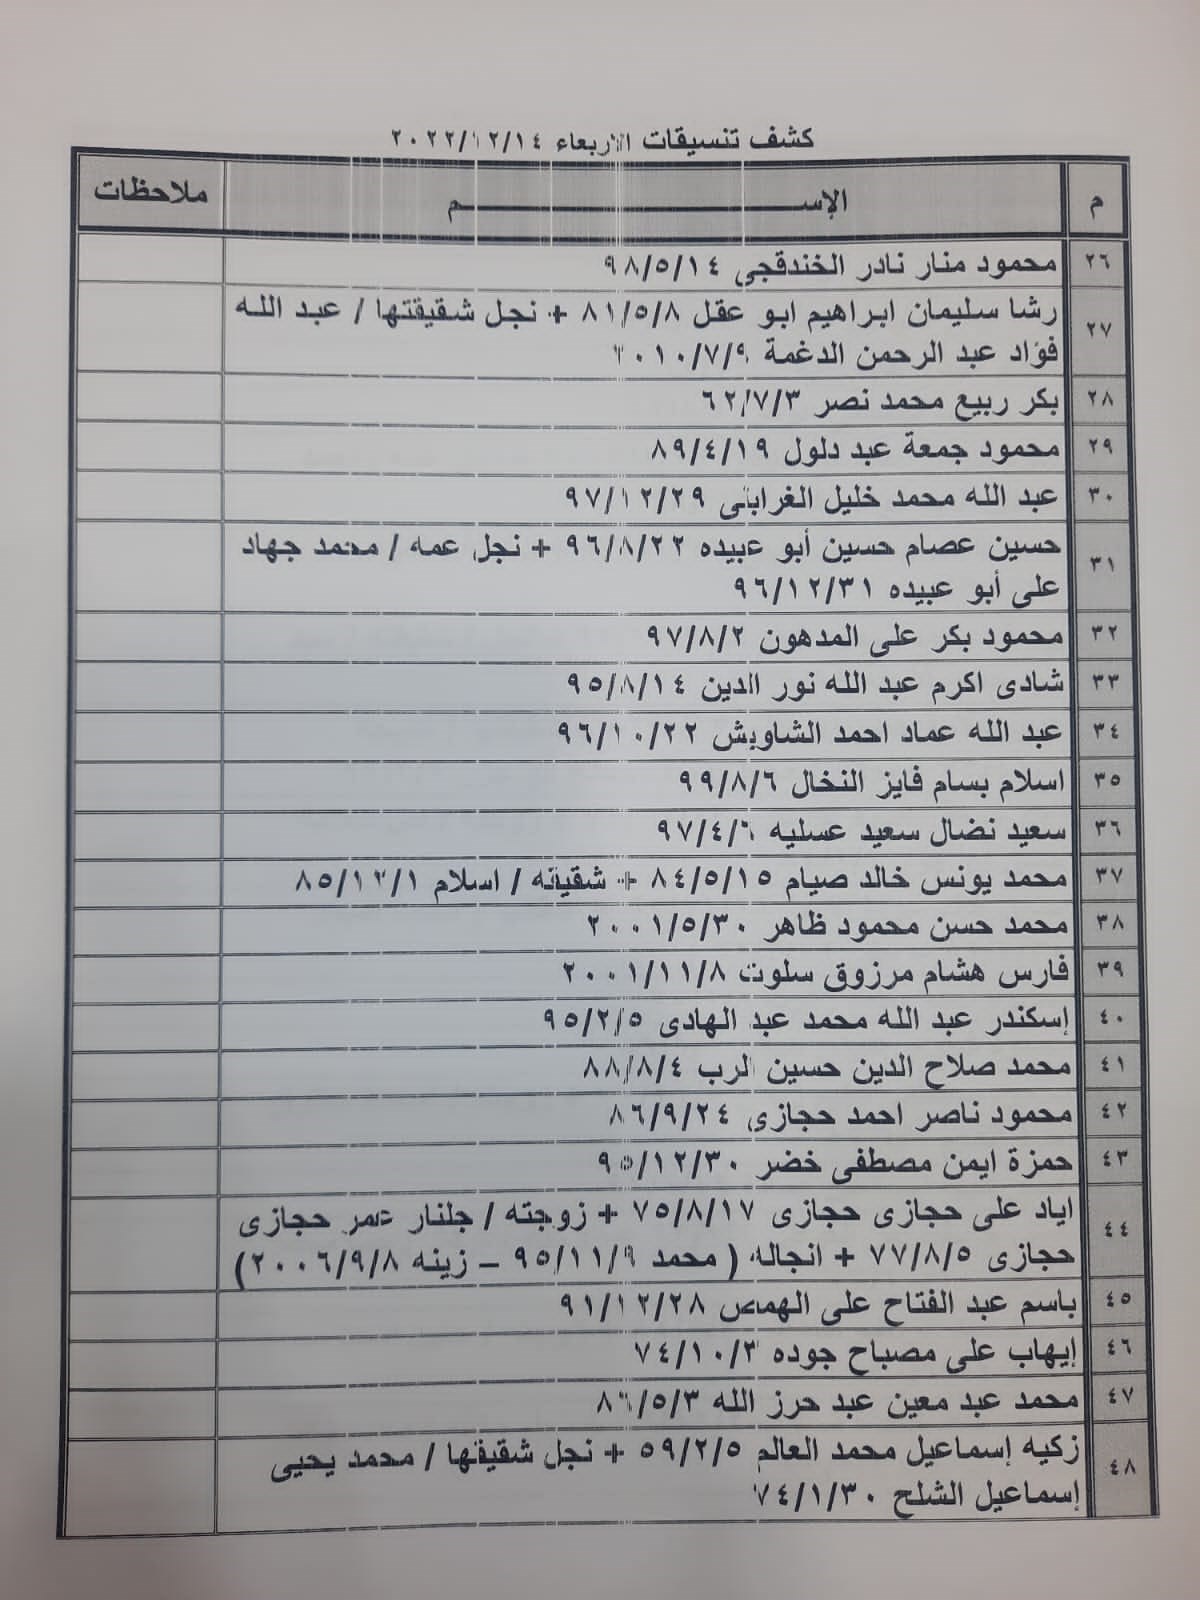 كشف تنسيقات الاربعاء ٢٠٢٢/١٢/١٤
م الإســـــــــم ملاحظات
٢٦ محمود منار نادر الخندقجى ٩٨/٥/١٤
٢٧ رشا سليمان ابراهيم ابو عقل ٨١/٥/٨ + نجل شقيقتها / عبد الله
فؤاد عبد الرحمن الدغمة ٢٠١٠/٧/٩
٢٨ بكر ربيع محمد نصر ٦٢/٧/٣
٢٩ محمود جمعة عبد دلول ٨٩/٤/١٩
٣٠ عبد الله محمد خليل الغرابلى ٩٧/١٢/٢٩
٣١ حسين عصام حسين أبو عبيده ٩٦/٨/٢٢ + نجل عمه / محمد جهاد
على أبو عبيده ٩٦/١٢/٣١
٣٢ محمود بكر على المدهون ٩٧/٨/٢
٣٣ شادى اكرم عبد الله نور الدين ٩٥/٨/١٤
٣٤ عبد الله عماد احمد الشاويش ٩٦/١٠/٢٢
٣٥ اسلام بسام فايز النخال ٩٩/٨/٦
٣٦ سعيد نضال سعيد عسليه ٩٧/٤/٦
٣٧ محمد يونس خالد صيام ٨٤/٥/١٥ + شقيقه / اسلام ٨٥/١٢/١
٣٨ محمد حسن محمود ظاهر ٢٠٠١/٥/٣٠
٣٩ فارس هشام مرزوق سلوت ٢٠٠١/١١/٨
٤٠ إسكندر عبد الله محمد عبد الهادى ٩٥/٢/٥
٤١ محمد صلاح الدين حسين الرب ٨٨/٨/٤
٤٢ محمود ناصر احمد حجازى ٨٦/٩/٢٤
٤٣ حمزة ايمن مصطفى خضر ٩٥/١٢/٣٠
٤٤ اياد على حجازى حجازى ٧٥/٨/١٧ + زوجته / جلنار عمر حجازى
حجازى ٧٧/٨/٥ + انجاله ( محمد ٩٥/١١/٩ – زينه ٢٠٠٦/٩/٨)
٤٥ باسم عبد الفتاح على الهمص ٩١/١٢/٢٨
٤٦ إيهاب على مصباح جوده ٧٤/١٠/٣
٤٧ محمد عبد معين عبد حرز الله ٨٦/٥/٣
٤٨ زكيه إسماعيل محمد العالم ٥٩/٢/٥ + نجل شقيقها / محمد يحيى
إسماعيل الشلح ٧٤/١/٣٠